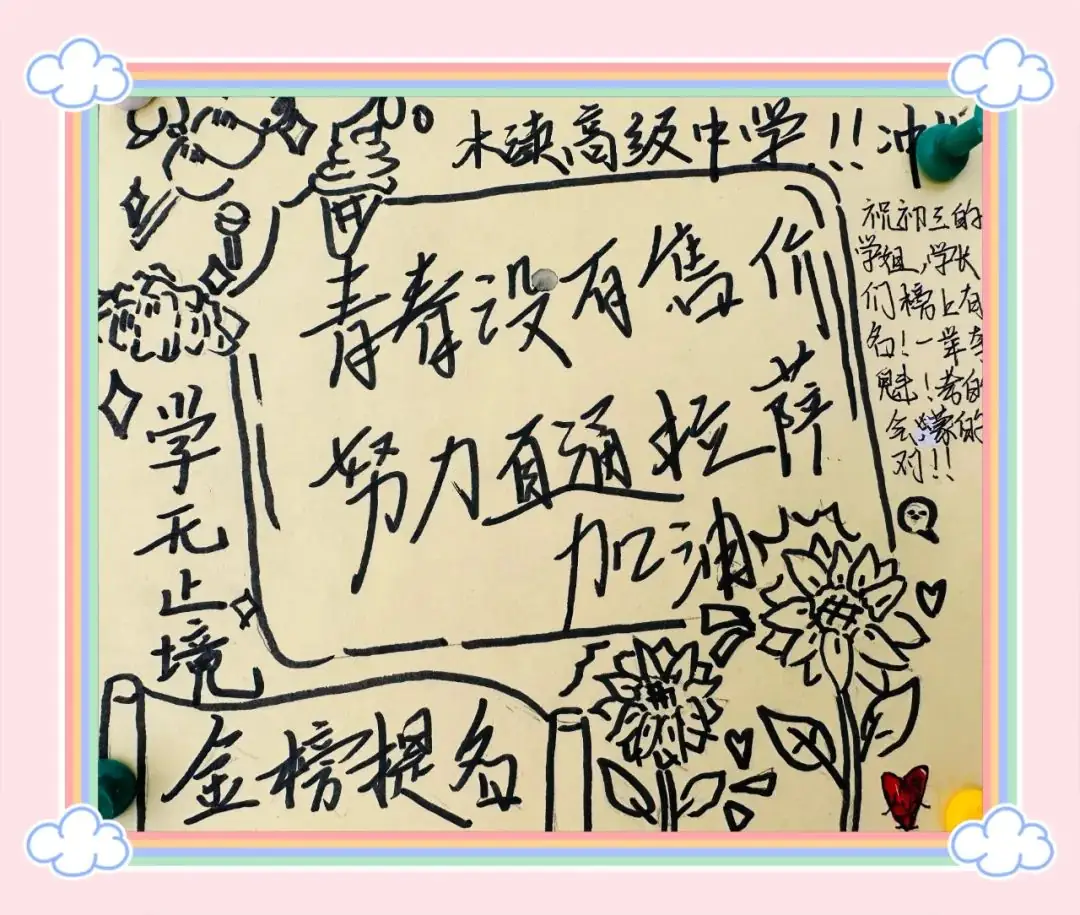 木渎高级中学!!冲
青春没有售价
努力直通拉萨
加油
祝初三的
学姐,学长
们榜上有
名!一举夺
魁!考的
会,蒙的
对!!
学无止境
金榜提名